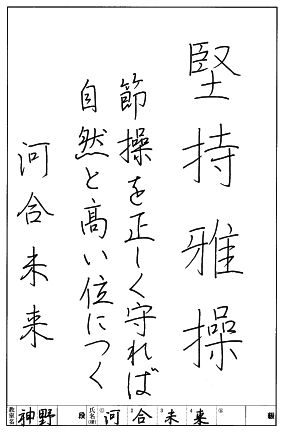 堅持雅操
節操を正しく守れば
自然と高い位につく
河合未来
教室名 神野 段 氏名(号) ① 河 2 合 3 未 4 来 ⑤ 級